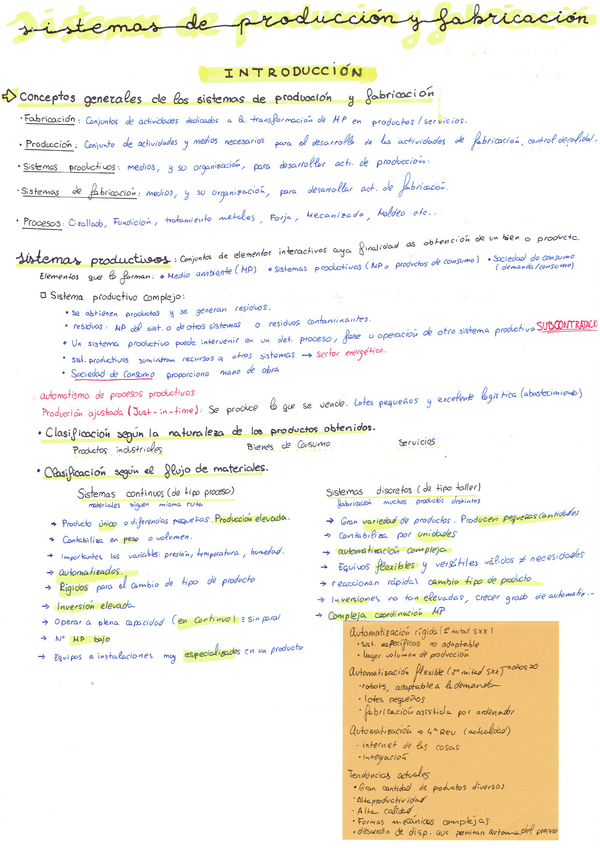 sistemas de producción y fabricación
INTRODUCCIÓN
Conceptos generales de los sistemas de producción y fabricación
· Fabricación: Conjuntos de actividades dedicados a la transformación de MP en productos/servicios.
· Producción: Conjunto de actividades y medios necesarios para el desarrollo de las actividades de fabricación, control de calidad.
· Sistemas productivos: medios, y su organización, para desarrollar acti. de producción.
· Sistemas de fabricación: medios, y su organización, para desarrollar act. de fabricación.
· Procesos: Cizallado, Fundición, tratamiento metales, Forja, Mecanizado, Moldeo etc...
Sistemas productivos: Conjunto de elementos interactivos cuya finalidad es obtención de un bien o producto.
Elementos que lo forman: • Medio ambiente (MP) • Sistemas productivos (MP o productos de consumo) • Sociedad de consumo
(demanda/consumo)
□ Sistema productivo complejo:
• Se obtienen productos y se generan residuos.
• residuos: MP del sist. o de otros sistemas o residuos contaminantes.
• Un sistema productivo puede intervenir en un det. proceso, fase u operación de otro sistema productivo SUBCONTRATACI
• sist. productivos suministran recursos a otros sistemas → Sector energético.
• Sociedad de Consumo proporciona mano de obra
automatismo de procesos productivos
Producción ajustada (Just-in-time): Se produce lo que se vende. Lotes pequeños y excelente logística (abastecimiento)
• Clasificación según la naturaleza de los productos obtenidos.
Productos industriales Bienes de Consumo Servicios
• Clasificación según el flujo de materiales.
Sistemas continuos (de tipo proceso)
materiales siguen misma ruta
→ Producto único o diferencias pequeñas. Producción elevada.
→ Contabiliza en peso o volumen.
→ Importantes las variables: presión, temperatura, humedad.
→ automatizados.
→ Rígidos para el cambio de tipo de producto
→ Inversión elevada
→ Operar a plena capacidad (en continuo) = Sin parar
→ Nº MP bajo
→ Equipos e instalaciones muy especializados en un producto
Sistemas discretos (de tipo taller)
fabricación muchos productos distintos
→ Gran variedad de productos. Producen pequeñas cantidades
→ Contabiliza por unidades
→ automatización compleja
→ Equipos flexibles y versátiles válidos ≠ necesidades
→ reaccionan rápida/ cambio tipo de producto
→ Inversiones no tan elevadas, crecer grado de automatiz...
→ Compleja coordinación MP
Automatización rígida (1ª mitad SXX)
• Sist. específicos no adaptable
• Mayor volumen de producción
Automatización flexible (2ª mitad SXX) → años 70
• robots, adaptable a la demanda
• lotes pequeños
• fabricación asistida por ordenador
Automatización → 4ª Rev (actualidad)
· internet de las cosas
• Integración
Tendencias actuales
• Gran cantidad de productos diversos
• Alta productividad
• Alta calidad
• Formas mecánicas complejas
• desarrollo de disp. que permitan automa del proceso